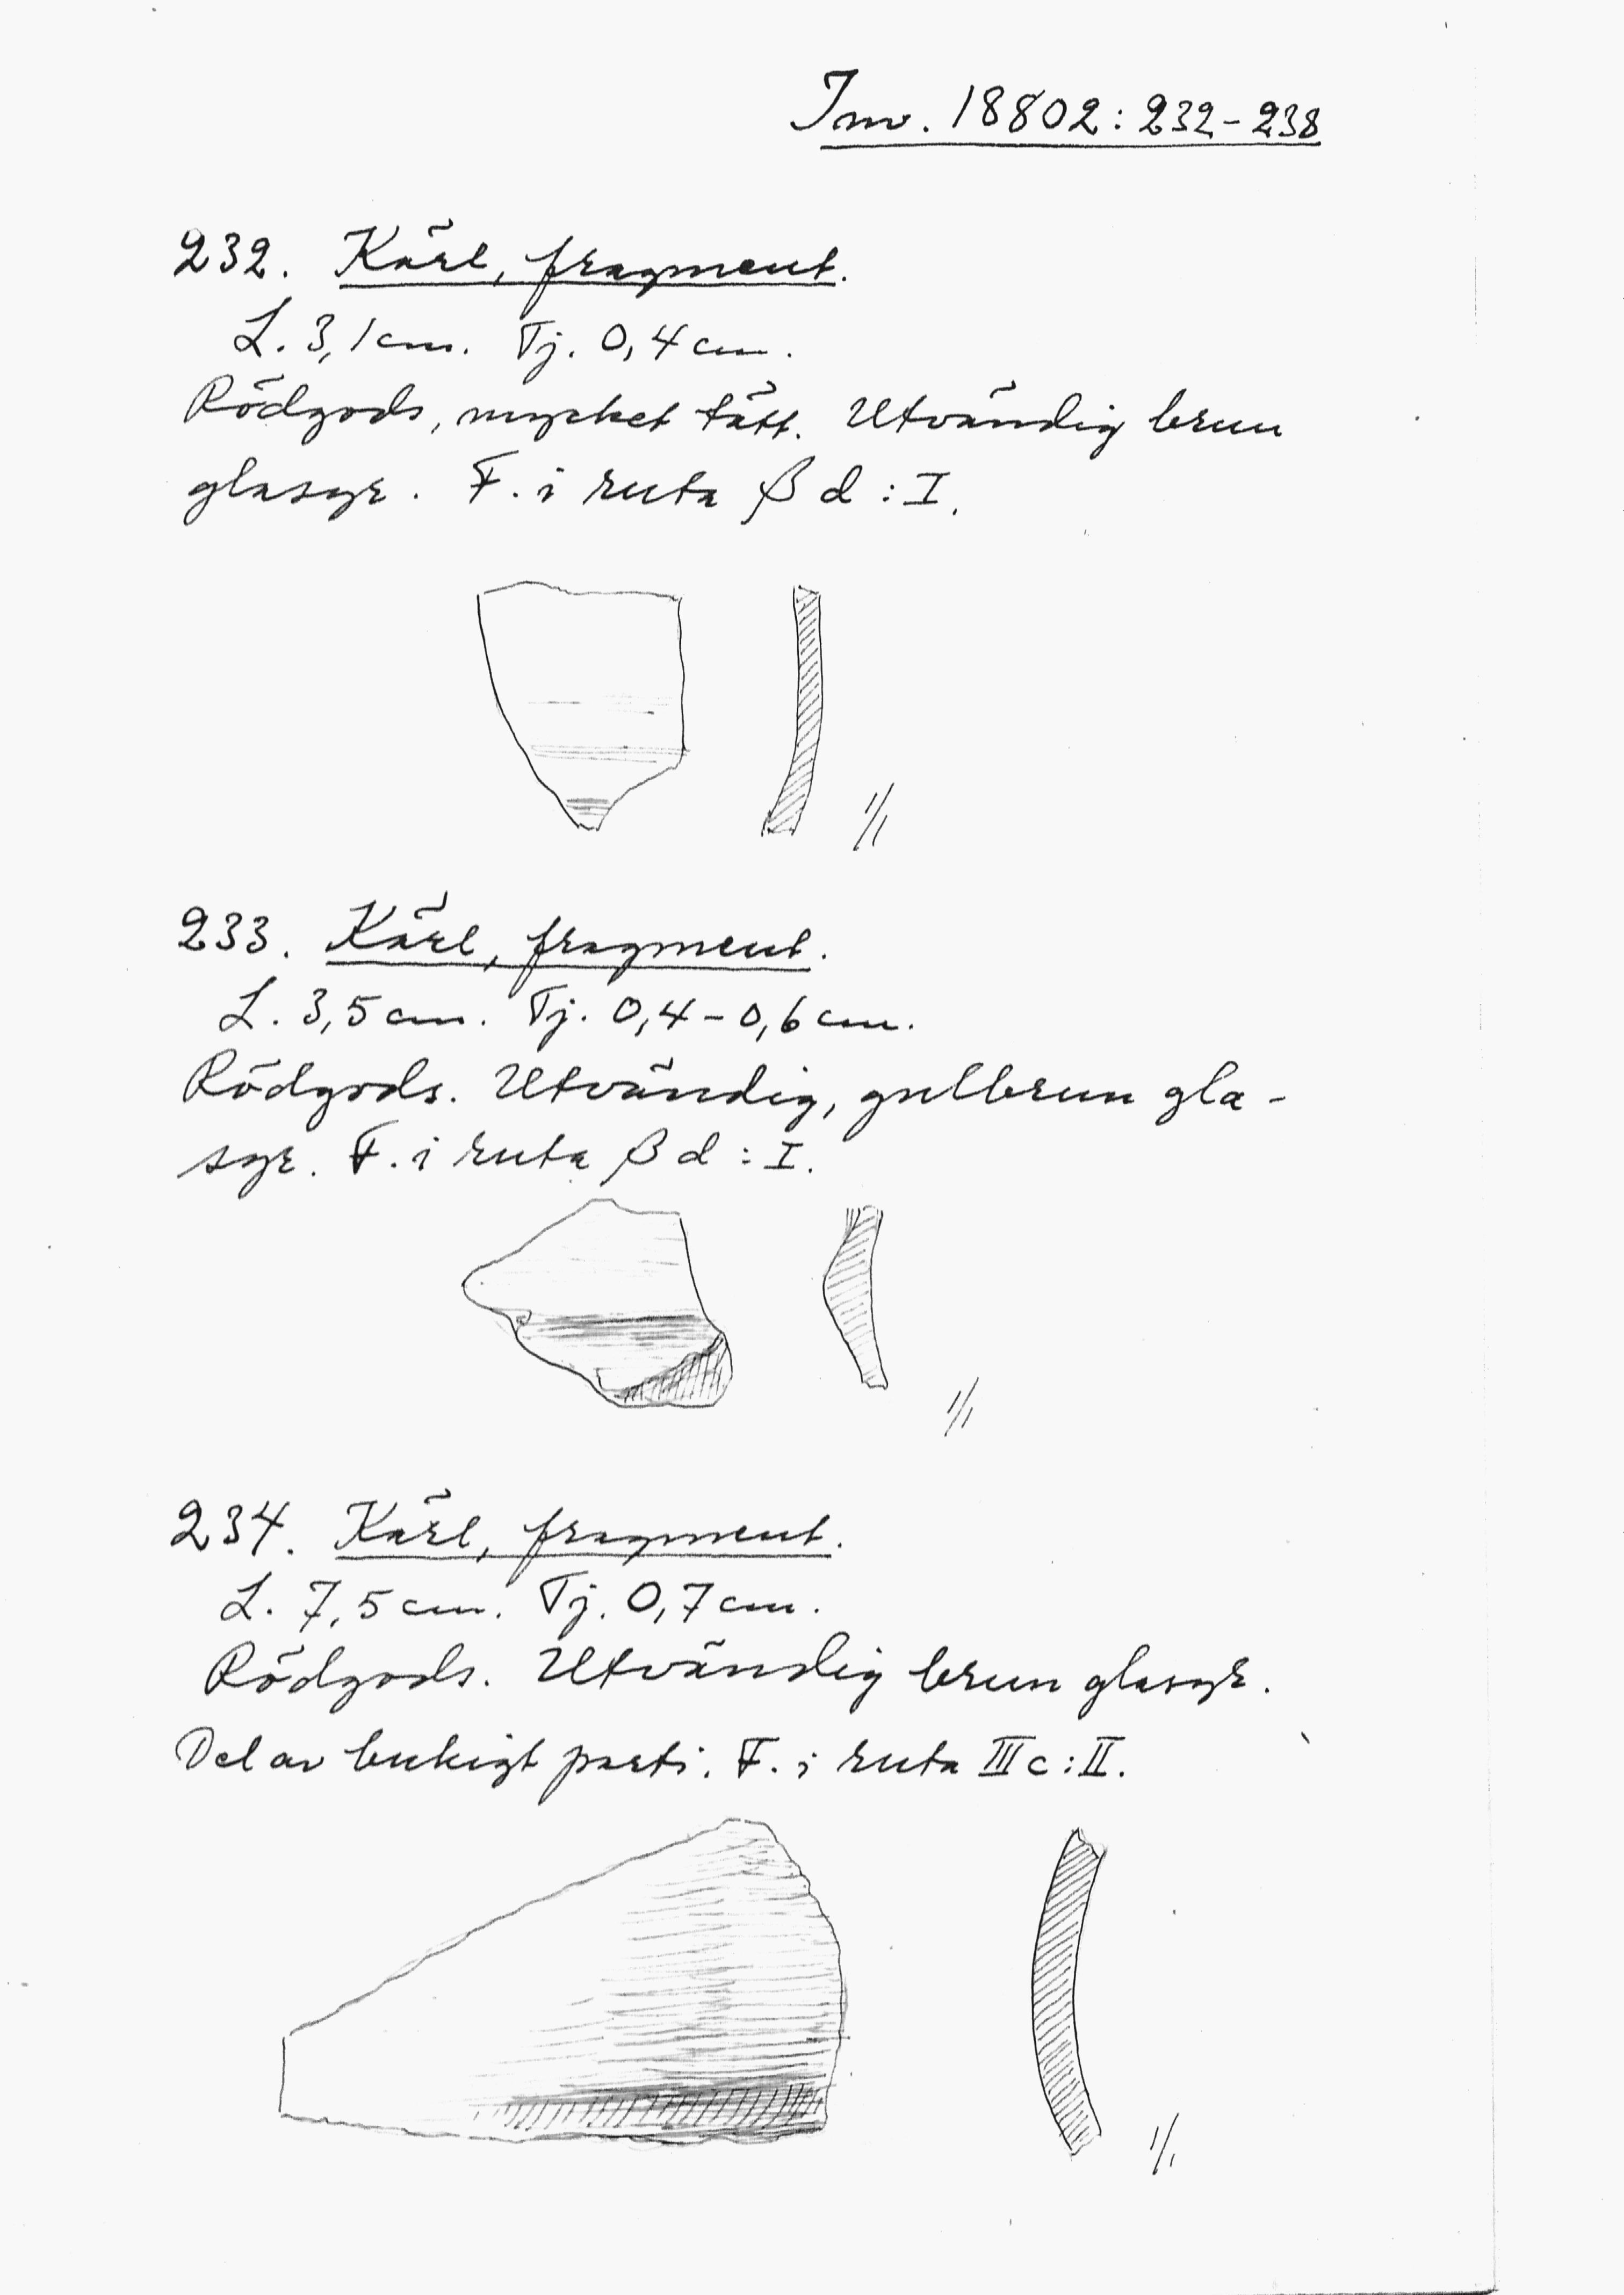 Inv. 18802: 232-238
232. Kärl, fragment.
L. 3,1 cm. Tj. 0,4 cm.
Rödgods, mycket tätt. Utvändig brun
glasyr. F. i ruta β d : I.
1/1
233. Kärl, fragment.
L. 3,5 cm. Tj. 0,4-0,6 cm.
Rödgods. Utvändig, gulbrun gla-
syr. F. i ruta β d : I.
1/1
234. Kärl, fragment.
L. 7,5 cm. Tj. 0,7 cm.
Rödgods. Utvändig brun glasyr.
Del av bukigt parti. F. i ruta III c : II.
1/1